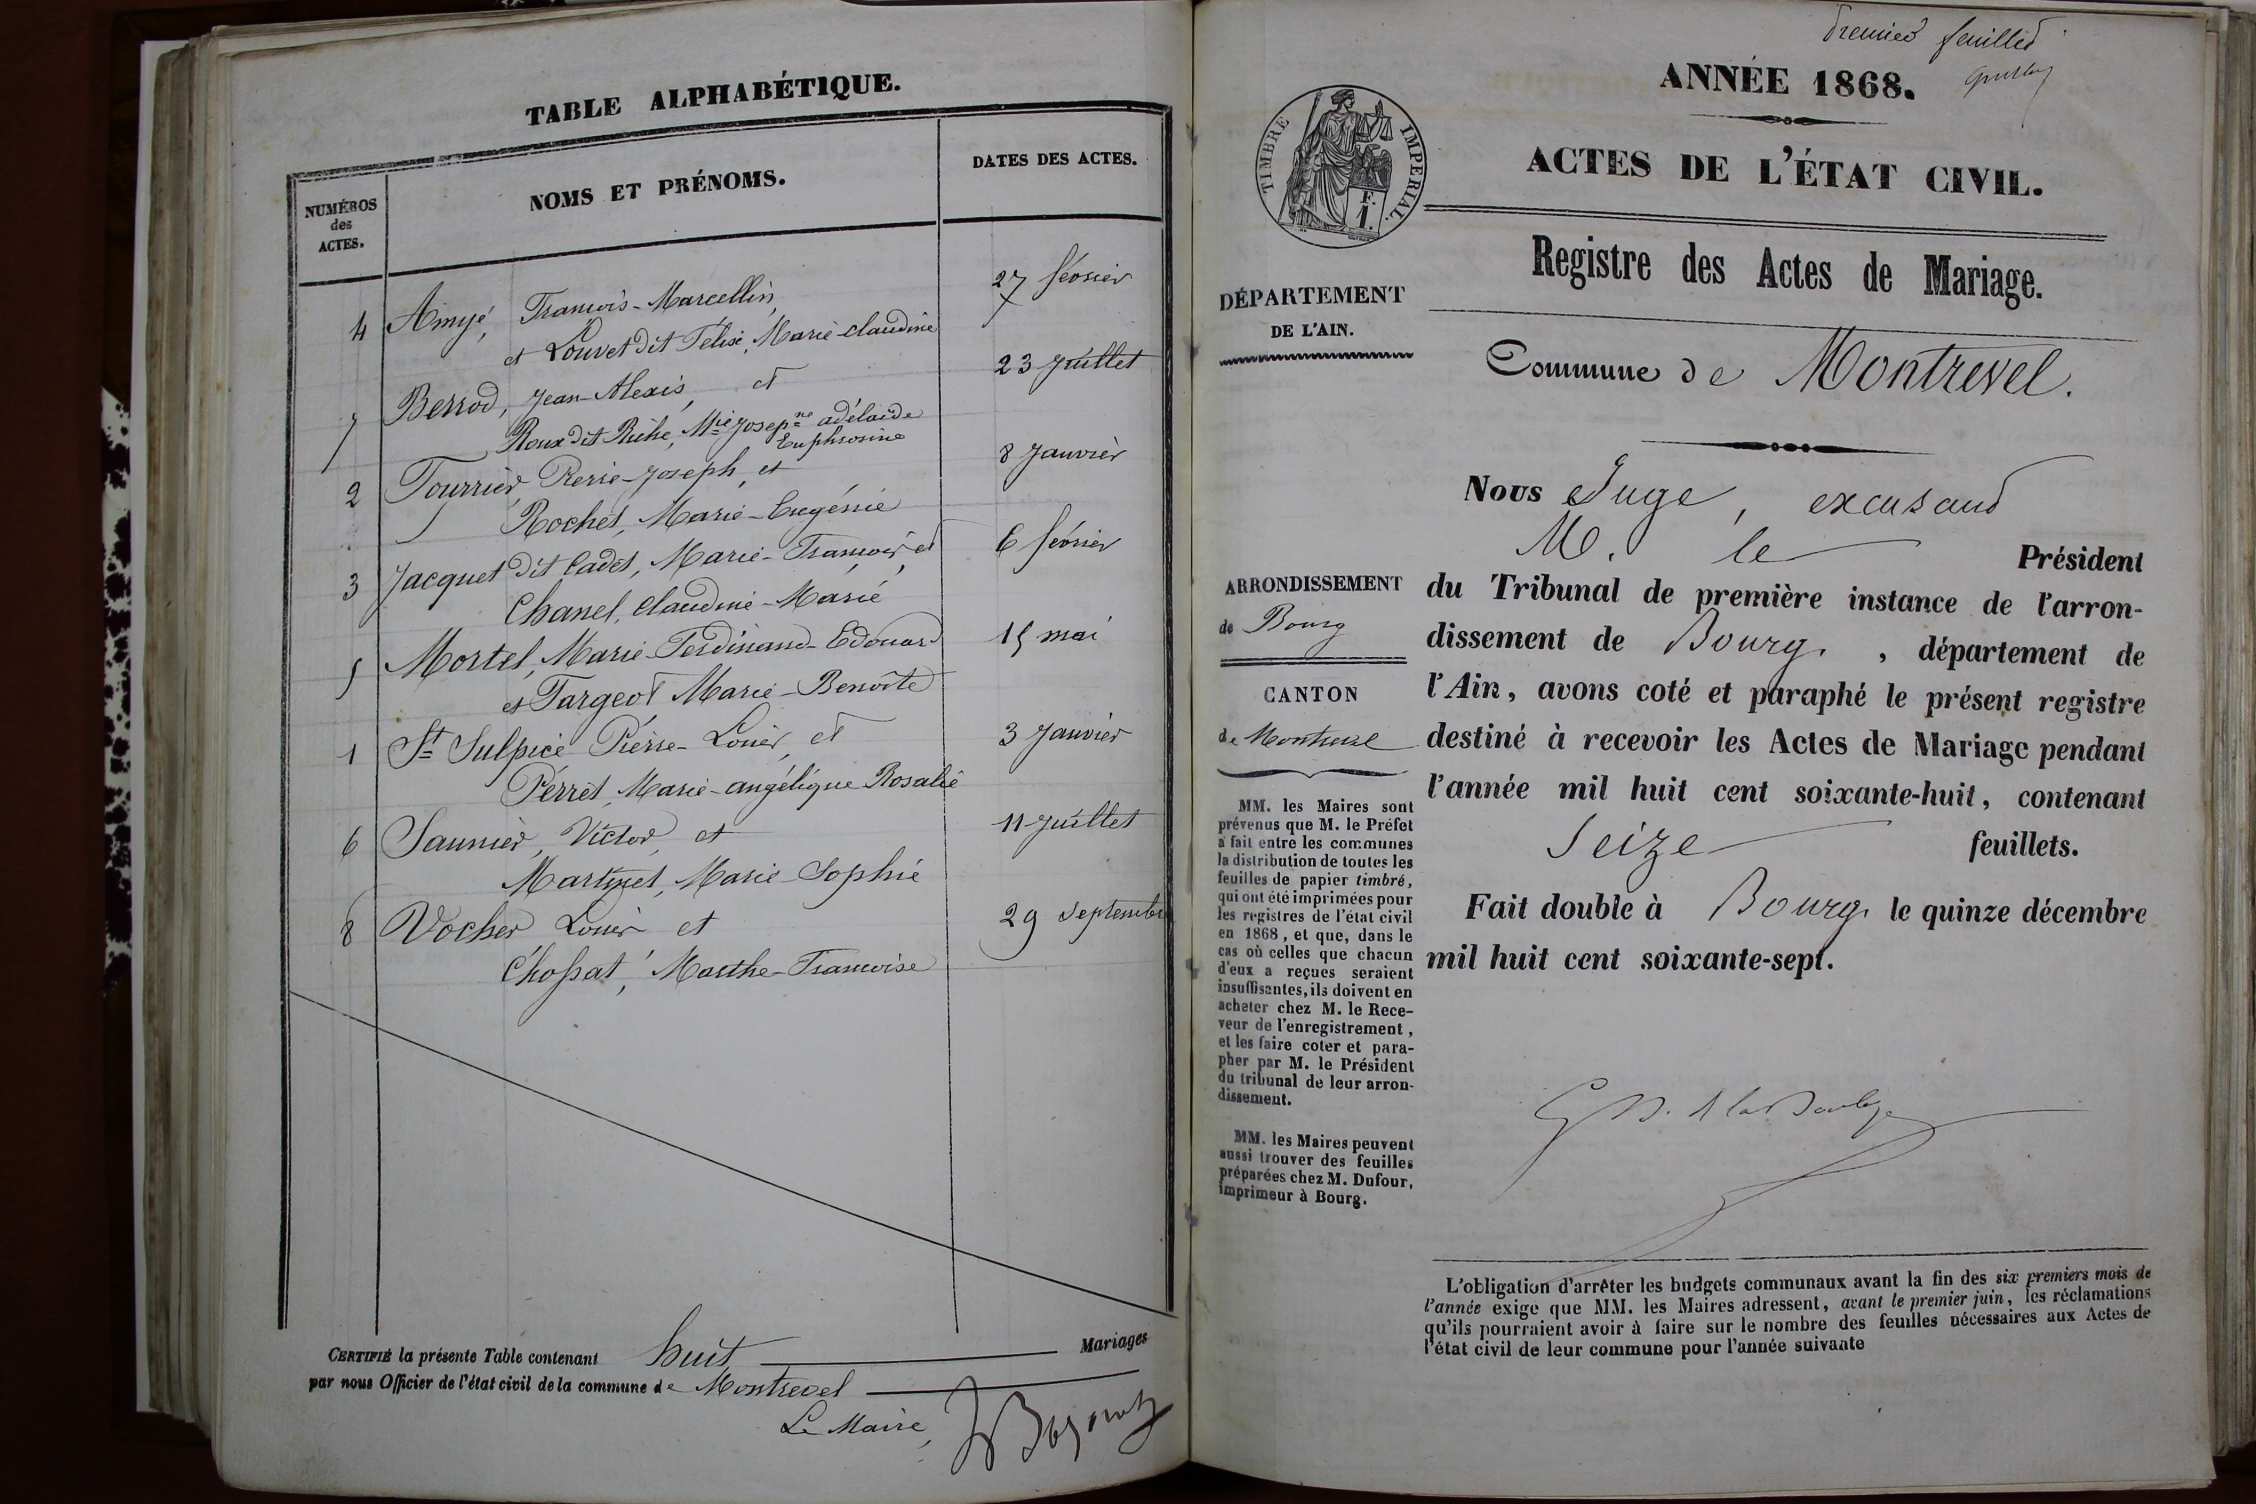 TABLE ALPHABÉTIQUE.
NUMÉROS
des
ACTES.
NOMS ET PRÉNOMS.
DATES DES ACTES.
4 Amyé, François-Marcellin, 27 février
et Louvet dit Félise, Marie-claudine
7 Berrod, Jean-Alexis, et 23 Juillet
Roux dit Riche, Mie Josepne adélaïde
Euphrosine
2 Fourrier, Pierre-Joseph, et 8 Janvier
Rochet, Marie-Eugénie
3 Jacquet dit Cadet, Marie-François, et 6 février
Chanel, Claudine-Marie
5 Mortel, Marie-Ferdinand-Edouard 15 mai
et Fargeot Marie-Benoîte
1 St Sulpice Pierre-Louis, et 3 Janvier
Perret, Marie-angélique Rosalie
6 Saunier, Victor, et 11 Juillet
Martinet, Marie-Sophie
8 Vocher Louis et 29 Septembre
Chossat, Marthe-Francoise
CERTIFIÉ la présente Table contenant huit Mariages
par nous Officier de l'état civil de la commune de Montrevel
Le Maire,
Premier feuillet
ANNÉE 1868.
TIMBRE IMPERIAL.
F.
1.
ACTES DE L'ÉTAT CIVIL.
Registre des Actes de Mariage.
DÉPARTEMENT
DE L'AIN.
Commune de Montrevel.
Nous Juge, excusant
M. le Président
du Tribunal de première instance de l'arron-
dissement de Bourg, département de
l'Ain, avons coté et paraphé le présent registre
destiné à recevoir les Actes de Mariage pendant
l'année mil huit cent soixante-huit, contenant
Seize feuillets.
Fait double à Bourg, le quinze décembre
mil huit cent soixante-sept.
ARRONDISSEMENT
de Bourg
CANTON
de Montrevel
MM. les Maires sont
prévenus que M. le Préfet
a fait entre les communes
la distribution de toutes les
feuilles de papier timbré,
qui ont été imprimées pour
les registres de l'état civil
en 1868, et que, dans le
cas où celles que chacun
d'eux a reçues seraient
insuffisantes, ils doivent en
acheter chez M. le Rece-
veur de l'enregistrement,
et les faire coter et para-
pher par M. le Président
du tribunal de leur arron-
dissement.
MM. les Maires peuvent
aussi trouver des feuilles
préparées chez M. Dufour,
imprimeur à Bourg.
L'obligation d'arrêter les budgets communaux avant la fin des six premiers mois de
l'année exige que MM. les Maires adressent, avant le premier juin, les réclamations
qu'ils pourraient avoir à faire sur le nombre des feuilles nécessaires aux Actes de
l'état civil de leur commune pour l'année suivante